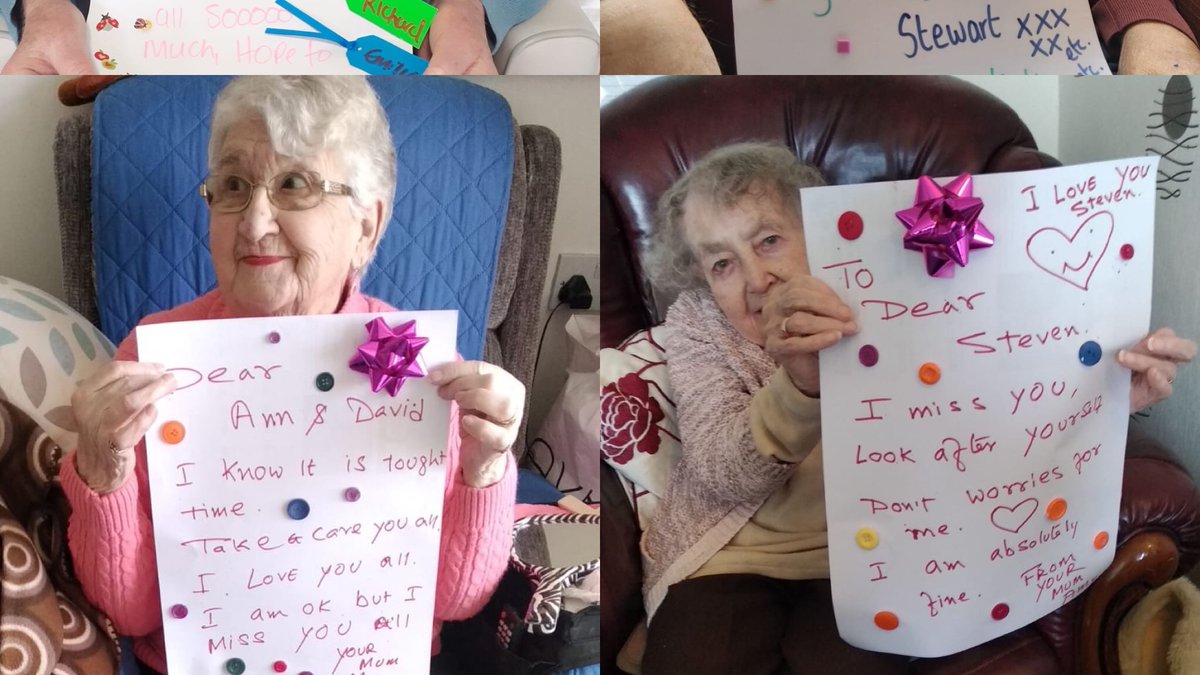 all Sooooo
Much, Hope to
Richard
Stewart xxx
xx etc.
etc.
Dear
Ann & David
I know It is tought
time.
Take a care you all.
I. Love you all.
I am ok but I
Miss you all
YOUR
MUM
I LOVE YOU
Steven.
TO
Dear
Steven.
I miss you,
Look after yourself
Don't worries for
me.
I am absolutely
fine.
FROM
YOUR
MUM